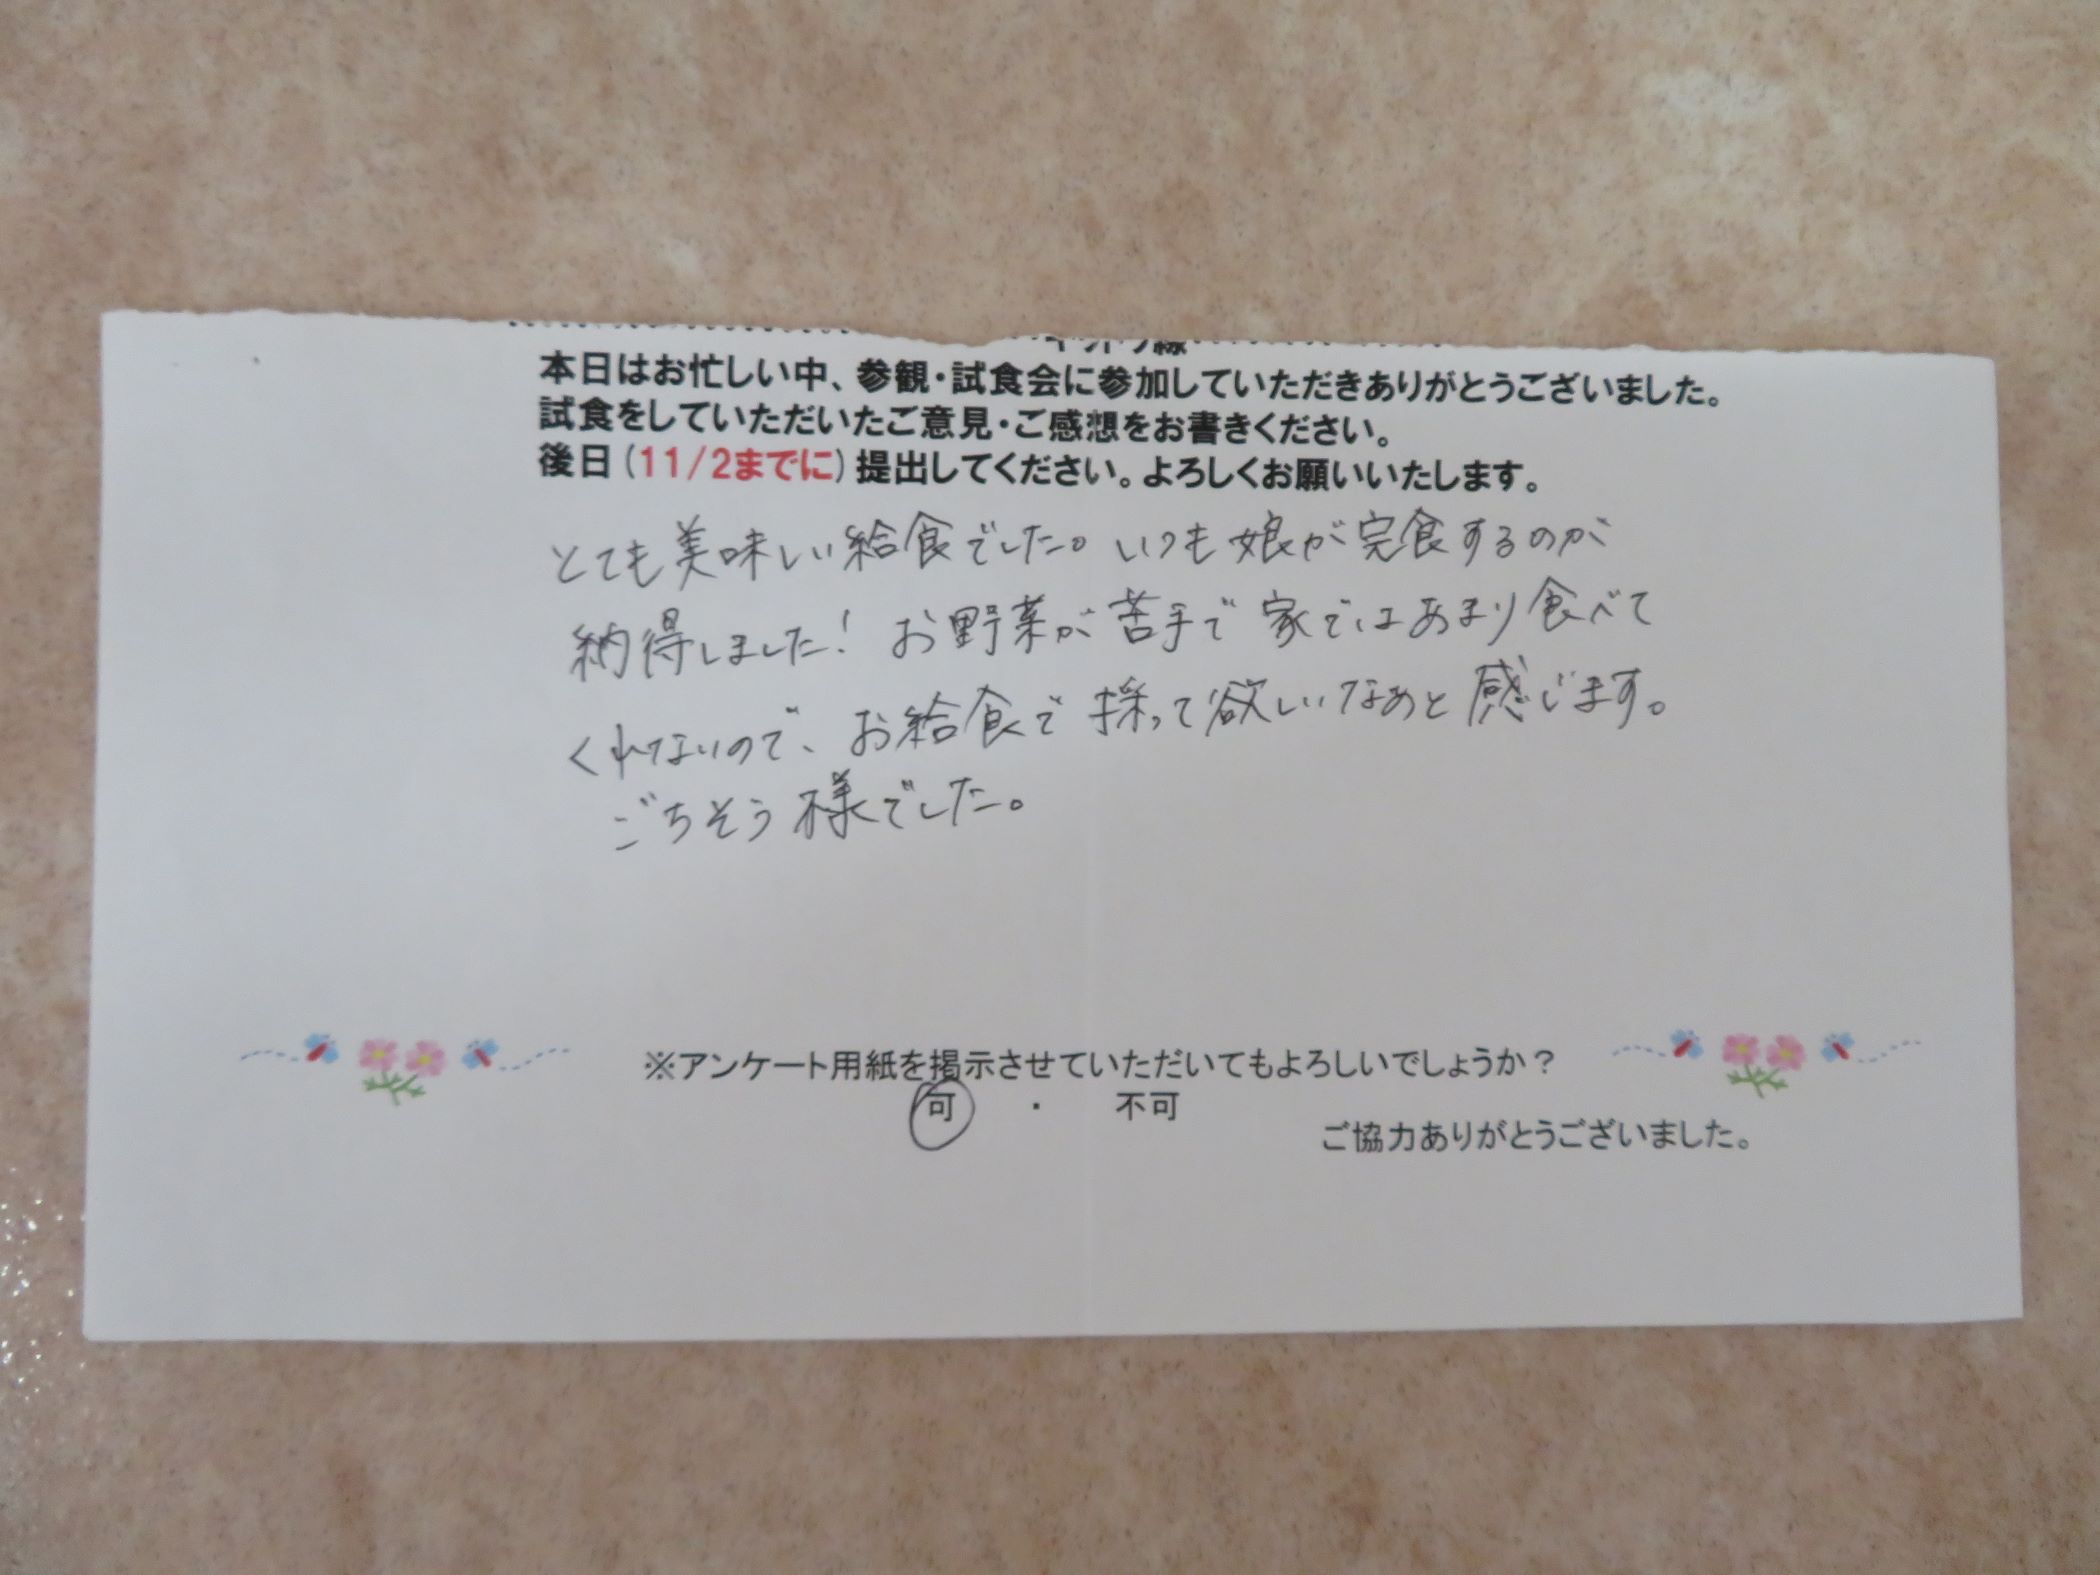 キリトリ線
本日はお忙しい中、参観・試食会に参加していただきありがとうございました。
試食をしていただいたご意見・ご感想をお書きください。
後日(11/2までに)提出してください。よろしくお願いいたします。
とても美味しい給食でした。いつも娘が完食するのが
納得しました！お野菜が苦手で家ではあまり食べて
くれないので、お給食で採って欲しいなあと感じます。
ごちそう様でした。
※アンケート用紙を掲示させていただいてもよろしいでしょうか？
可 ・ 不可
ご協力ありがとうございました。